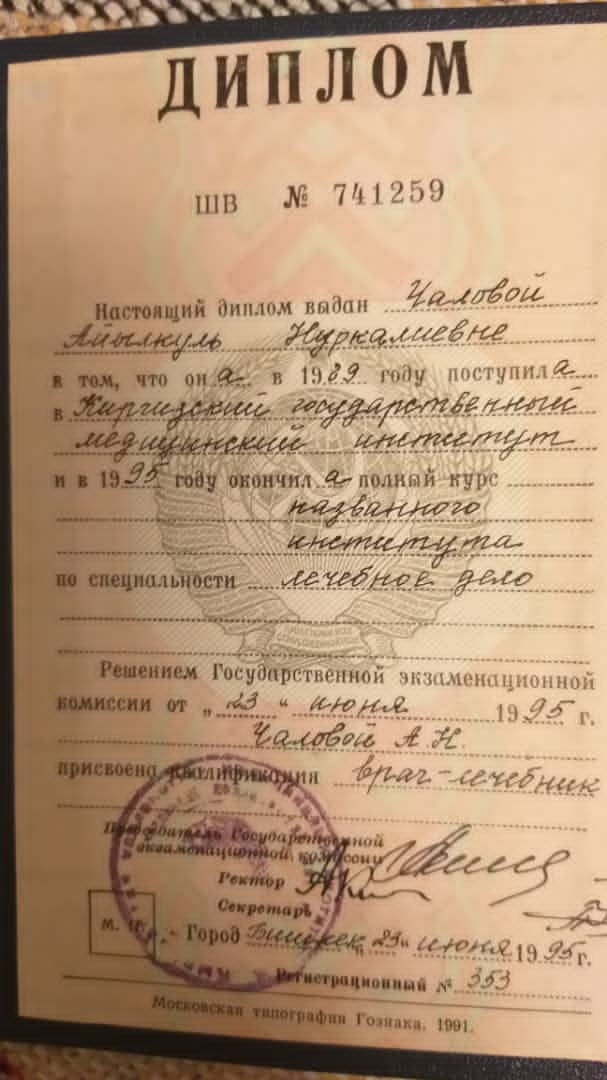 ДИПЛОМ
ШВ № 741259
Настоящий диплом выдан Чаловой
Айылкуль Нуркалиевне
в том, что она в 1989 году поступила
в Киргизский государственный
медицинский институт
и в 1995 году окончила полный курс
названного
института
по специальности лечебное дело
Решением Государственной экзаменационной
комиссии от „23“ июня 1995 г.
Чаловой А.Н.
присвоена квалификация врач-лечебник
Председатель Государственной
экзаменационной комиссии
Ректор
Секретарь
М. П.
Город Бишкек „23“ июня 1995 г.
Регистрационный № 353
Московская типография Гознака. 1991.